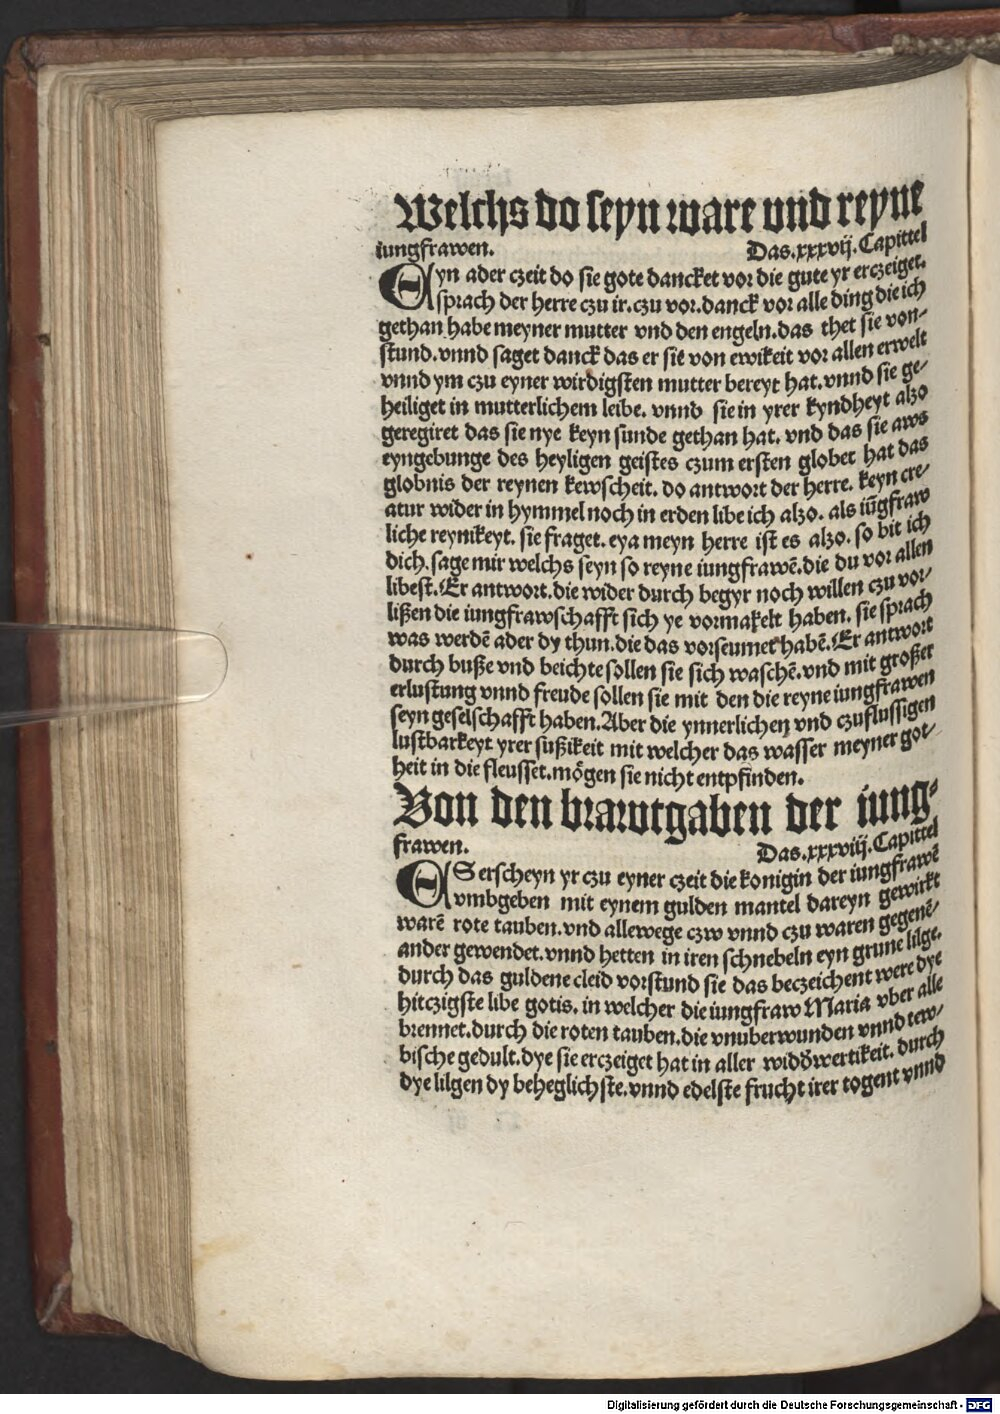 Welchs do seyn ware vnd reyne
iungfrawen. Das.xxxvij.Capittel
Eyn ader czeit do sie gote dancket vor die gute yr erczeiget.
sprach der herre czu ir.czu vor.danck vor alle ding die ich
gethan habe meyner mutter vnd den engeln.das thet sie von-
stund.vnnd saget danck das er sie von ewikeit vor allen erwelt
vnnd ym czu eyner wirdigsten mutter bereyt hat.vnnd sie ge-
heiliget in mutterlichem leibe. vnnd sie in yrer kyndheyt alzo
geregiret das sie nye keyn sunde gethan hat. vnd das sie aws
eyngebunge des heyligen geistes czum ersten globet hat das
globnis der reynen kewscheit. do antwort der herre. keyn cre-
atur wider in hymmel noch in erden libe ich alzo. als iūgfraw
liche reynikeyt. sie fraget. eya meyn herre ist es alzo. so bit ich
dich.sage mir welchs seyn so reyne iungfrawē.die du vor allen
libest.Er antwort.die wider durch begyr noch willen czu vor-
lißen die iungfrawschafft sich ye vormakelt haben. sie sprach
was werdē ader dy thun.die das vorseumet habē.Er antwort
durch buße vnd beichte sollen sie sich waschē.vnd mit großer
erlustung vnnd freude sollen sie mit den die reyne iungfrawen
seyn geselschafft haben.Aber die ynnerlichen vnd czuflussigen
lustbarkeyt yrer sußikeit mit welcher das wasser meyner got-
heit in die fleusset.mögen sie nicht entpfinden.
Von den brawtgaben der iung-
frawen. Das.xxxviij.Capittel
ES erscheyn yr czu eyner czeit die konigin der iungfrawē
vmbgeben mit eynem gulden mantel dareyn gewirkt
warē rote tauben.vnd allewege czw vnnd czu waren gegenē-
ander gewendet.vnnd hetten in iren schnebeln eyn grune lilge.
durch das guldene cleid vorstund sie das beczeichent were dye
hitczigste libe gotis. in welcher die iungfraw Maria vber alle
brennet.durch die roten tauben.die vnuberwunden vnnd tew-
bische gedult.dye sie erczeiget hat in aller widd̕wertikeit. durch
dye lilgen dy beheglichste.vnnd edelste frucht irer togent vnnd
Digitalisierung gefördert durch die Deutsche Forschungsgemeinschaft - DFG